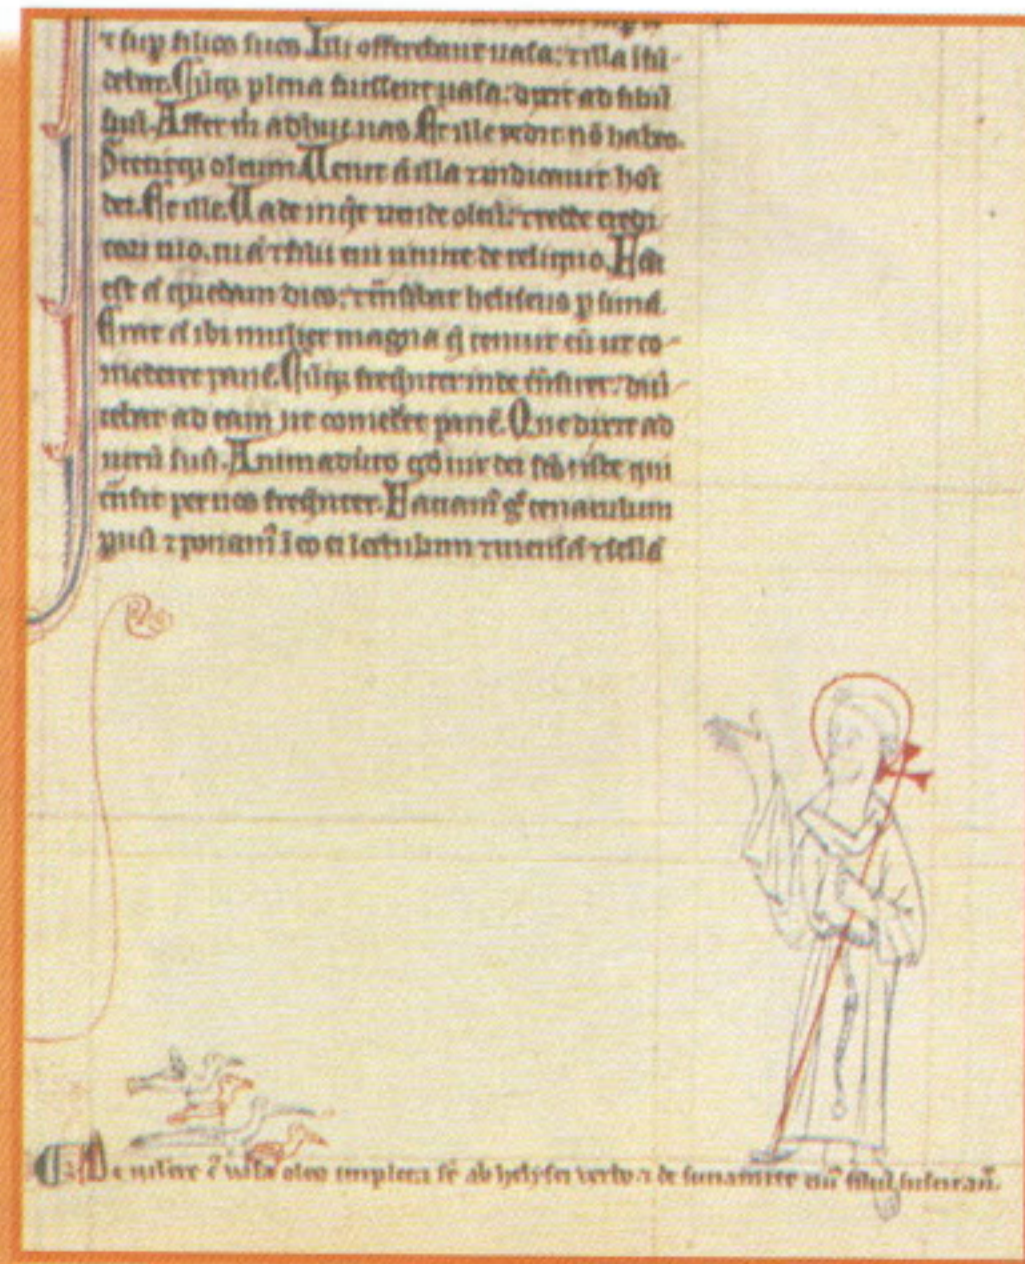 ⁊ sup filios suos. Illi offerebant uasa: ⁊ illa ifũ-
debat. Cũq; plena fuissent uasa: dixit ad filiũ
suũ. Affer m̃ adhuc uas. Et ille rñdit nõ habeo.
Stetitq; oleum. Uenit aũ illa ⁊ indicauit hoĩ
dei. Et ille. Uade inq̃t uende oleũ: ⁊ redde credi
tori tuo. tu aũ ⁊ filii tui uiuite de reliquo. Fcã
est aũ quedam dies: ⁊ trãsibat heliseus p sunã.
Erat aũ ibi mulier magna q̃ tenuit eũ ut co-
mederet panẽ. Cũq; freq̃nter inde trãsiret: diu-
tebat ad eam ut comedẽe panẽ. Que dixit ad
uirũ suũ. Animaduerto qd uir dei scs ẽ iste qui
trãsit per nos freq̃nter. Faciam̃ g̊ cenaculum
puũ ⁊ ponam̃ ĩ eo ei lectulum ⁊ mensã ⁊ sellã
De mũliere uasa oleo impleta st̃ ab helysei verbo ⁊ de sunamite filiũ suscitauit.